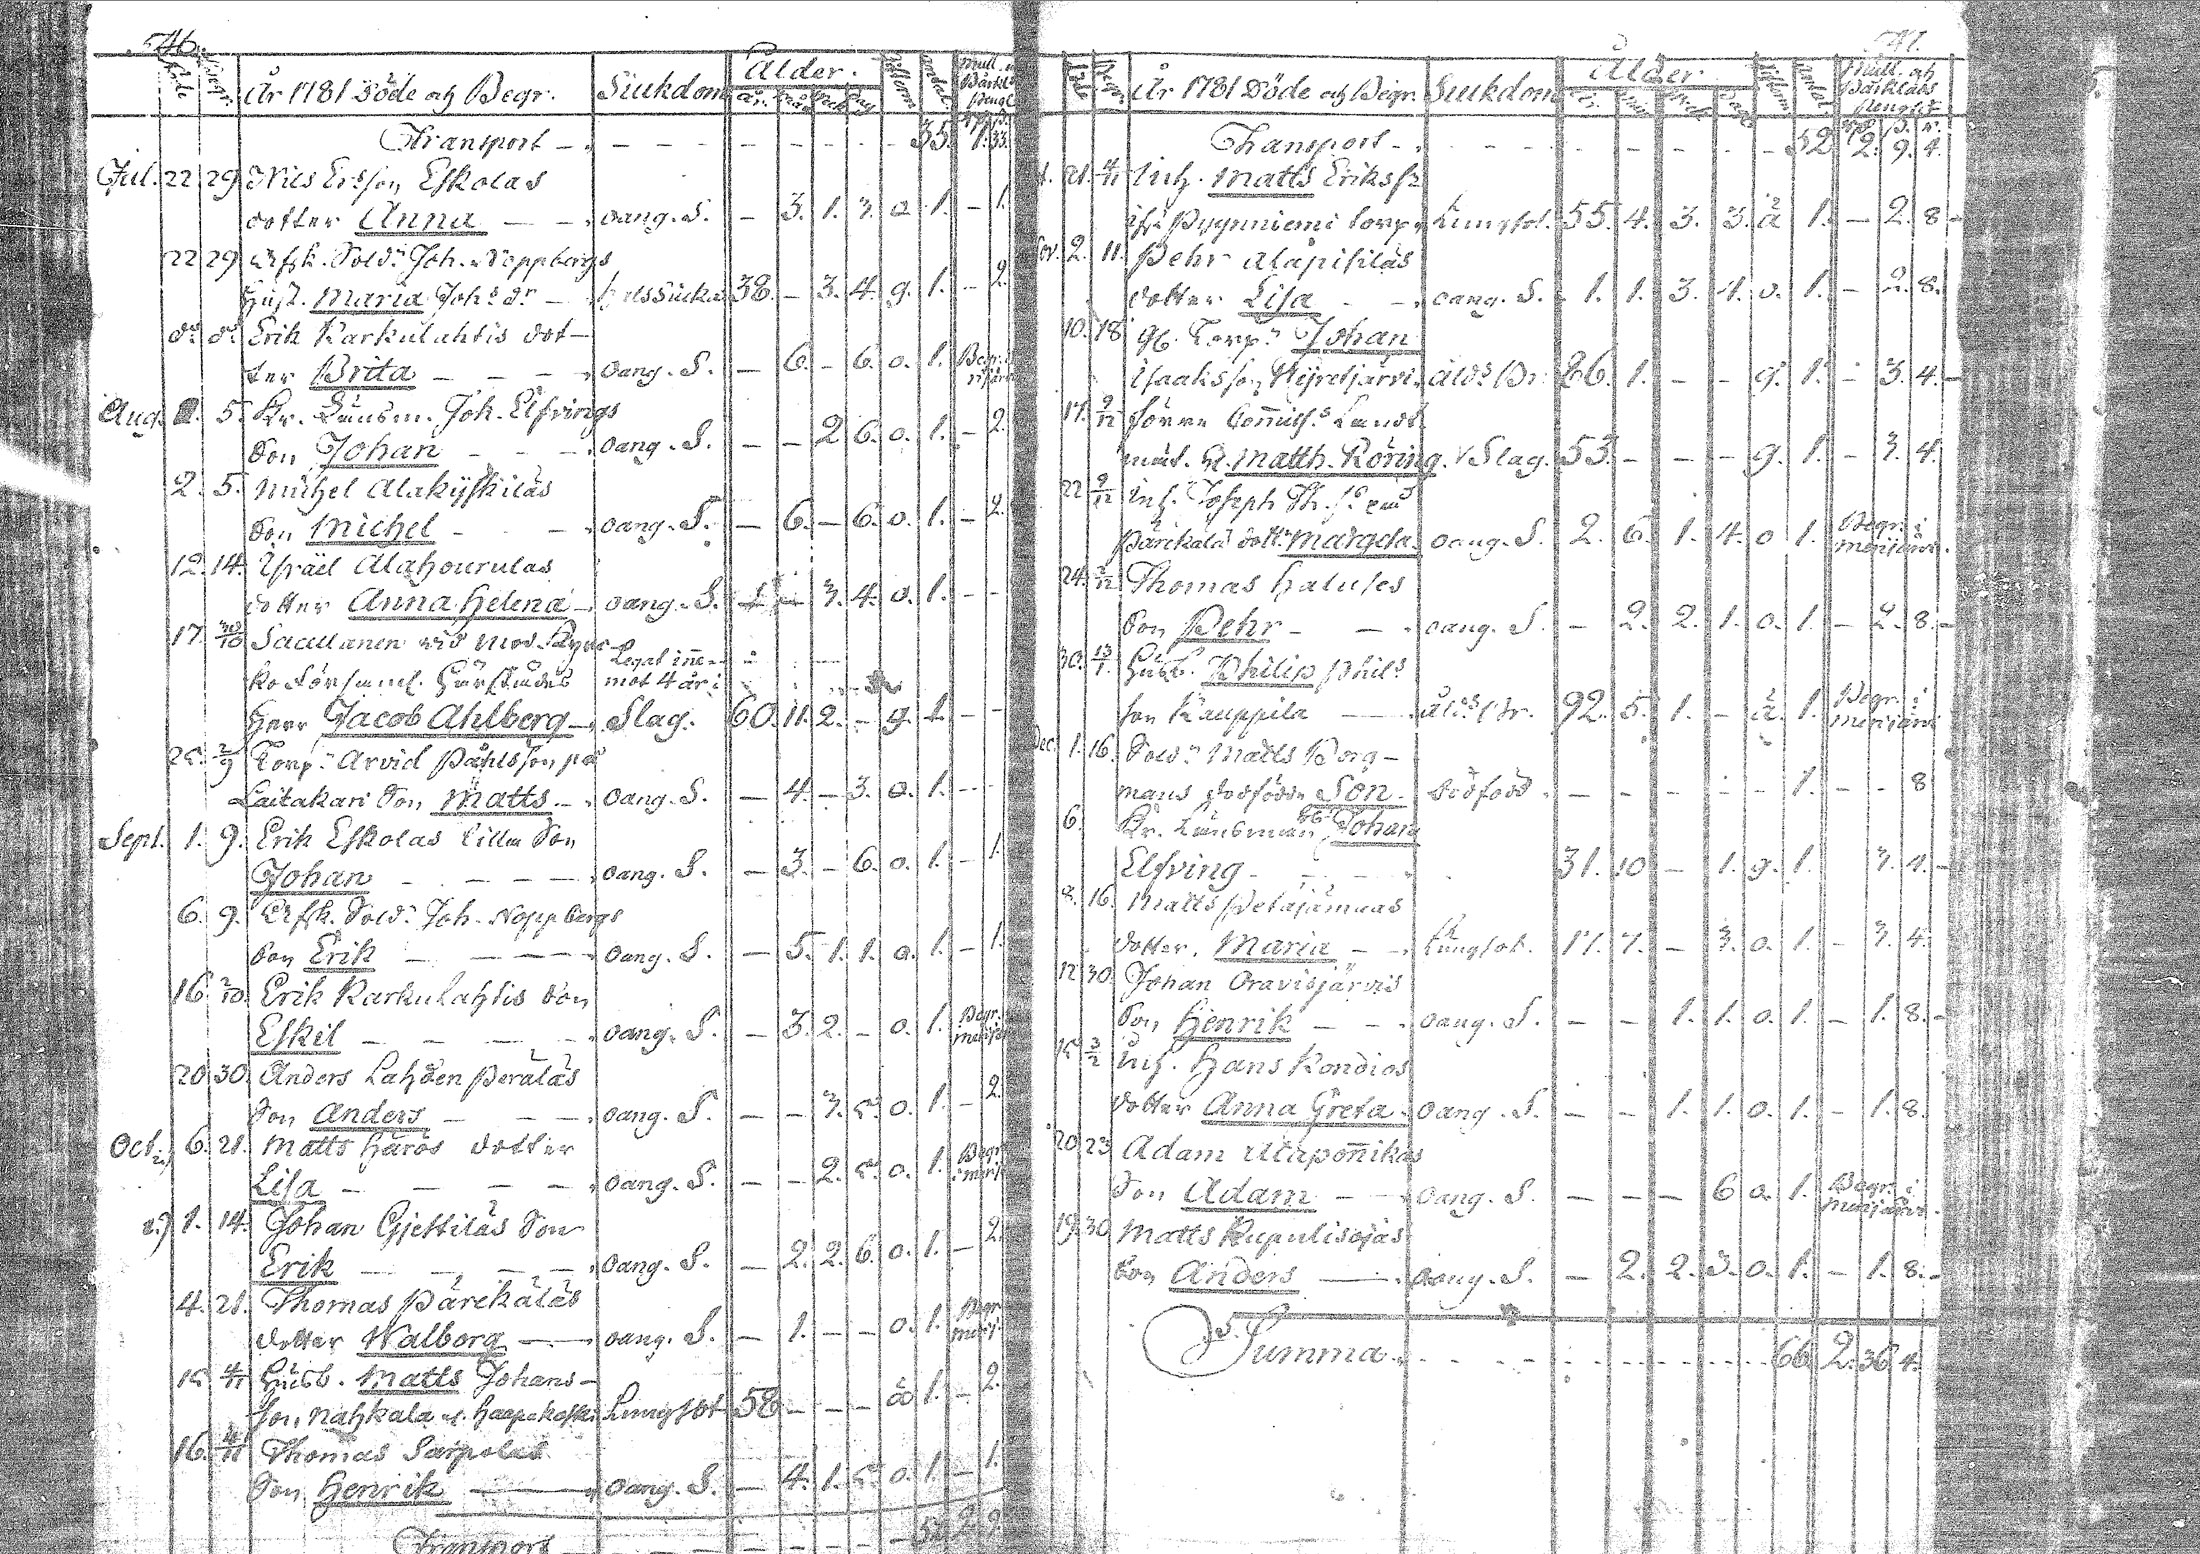 546.
Döde Begr. År 1781 Döde och Begr. Siukdom Ålder. år. Mån. Vek. Dag
Transport - - 35. 1. 33.
Jul. 22 29 Nils Ersson Eskolas
dotter Anna - oang. S. - 3. 1. 3. o. 1. - 1.
22 29 Afsk. Sold:n Joh. Noppbergs
Hust. Maria Joh:s d:r - 38. - 3. 4. g. 1. - 2.
d:o d:o Erik Karkulahtis dot-
ter Brita - - - oang. S. - 6. - 6. o. 1. Begr. i
Aug. 5. Kr. Länsm. Joh. Elfvings
Son Johan - - oang. S. - - 2 6. o. 1. - 2.
2. 5. Michel Alakyskiläs
Son Michel - - oang. S. - 6. - 6. o. 1. - 2.
12. 14. Israël Alahourulas
dotter Anna Helena - oang. S. 3. 4. o. 1. - -
17. 30/10 Sacellanen vid
ko Församl. Legat inne-
mot 4 år i
Herr Jacob Ahlberg - Slag. 60. 11. 2. - g. 1. - -
25. 2/9 Torp:n Arvid Påhlsson på
Laitakari Son Matts - oang. S. - 4. - 3. o. 1. - -
Sept. 1. 9. Erik Eskolas lilla Son
Johan - - - oang. S. - 3. - 6. o. 1. - 1.
6. 9. Afsk. Sold:n Joh. Noppbergs
Son Erik - - - oang. S. - 5. 1. 1. o. 1. - 1.
16. 2/10. Erik Karkulahtis Son
Eskil - - - oang. S. - 3. 2. - o. 1. Begr.
20 30. Anders Lahden Peräläs
Son Anders - - oang. S. - - 3. 5. o. 1. - 2.
Oct. 2.) 6. 21. Matts Häros dotter
Lisa - - - oang. S. - - 2. 5. o. 1. Begr.
1.) 1. 14. Johan Gjettiläs Son
Erik - - - oang. S. - 2. 2. 6. o. 1. - 2.
4. 21. Thomas Pärekäläs
dotter Walborg - oang. S. - 1. - - o. 1. Begr.
15 4/11 Husb. Matts Johans-
son Nahkala Lungsot 58 - - - 1. - 2.
16. 4/11 Thomas Sarpolas
Son Henrik - oang. S. - 4. 1. 5. o. 1. - 1.
Transport - - 52. 2. 9.
547.
Döde Begr. År 1781 Döde och Begr. Siukdom Ålder Mull- och Bårkläds penglr
Transport - - 52 2. 9. 4.
21. 4/11 Inh. Matts Eriksson
Lungsot. 55. 4. 3. 3. 1. - 2. 8 -
Nov. 2. 11. Pehr Alapihläs
dotter Lisa - - oang. S. 1. 1. 3. 4. o. 1. - 2. 8.
10. 18 gl. Torp:n Johan
Isaaksson Hyretjärvi. åld:s Br. 86. 1. - - g. 1. - 3. 4. -
17. 9/12 Förre Commiss:s Landt
mät. H. Matth. Röring. Slag. 53. - - - g. 1. - 3. 4.
22 9/12 Inh. Joseph
Päreкälä dott. Margeta. oang. S. 2. 6. 1. 4. o 1. Begr. i
Merijärvi.
24. Thomas Haluses
Son Pehr - - oang. S. - 2. 2. 1. o. 1. - 2. 8. -
30. 13/1. Husb. Philip Phils
son Kauppila - åld:s Br. 92. 5. 1. - 1. Begr. i
Merijärvi
Dec. 1. 16. Sold:n Matts Borg-
mans dödfödde Son - dödföd. - - - - 1. - - 8
6. Kr. Länsman Johan
Elfving - - 31. 10 - 1. g. 1. 3. 4. -
8. 16. Matts Petäjämaas
dotter. Maria - Lungsot. 17. 7. - 3. o. 1. - 3. 4.
12 30. Johan Oravisjärvis
Son Henrik - - oang. S. - - 1. 1. o. 1. - 1. 8. -
15. Inh. Hans Kondios
dotter Anna Greta. oang. S. - - 1. 1. o. 1. - 1. 8.
20 23 Adam
Son Adam - - oang. S. - - - 6 o. 1. Begr. i
Merijärvi.
19 30 Matts Kupulisojas
Son Anders - oang. S. - 2. 2. 3. o. 1. - 1. 8. -
Summa - - - 66. 2. 36 4.